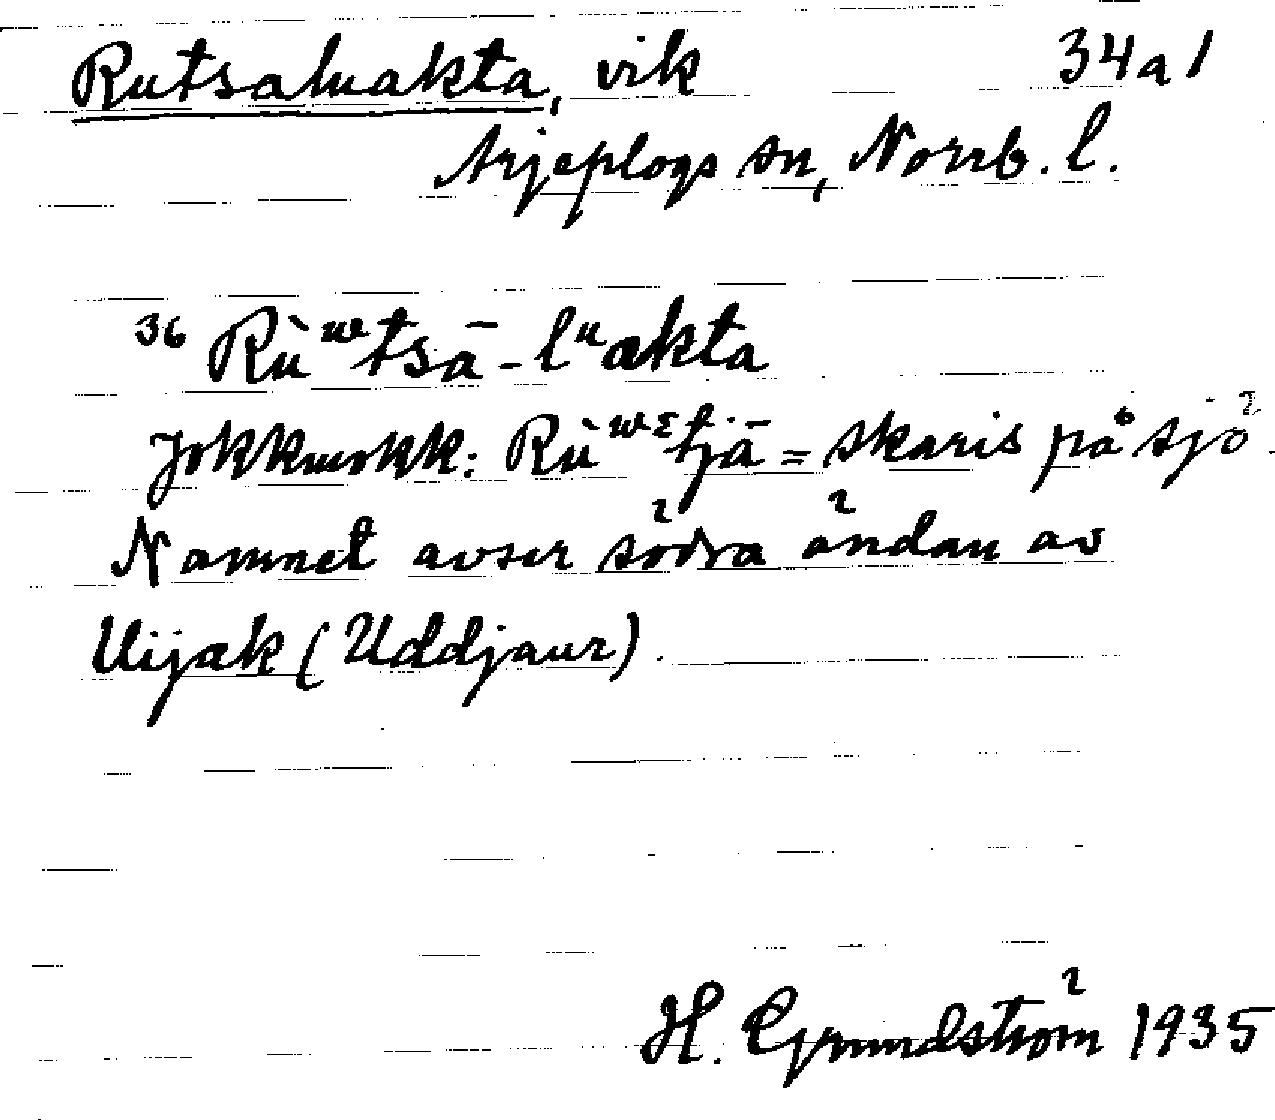 Rutsaluakta, vik 34a1
Arjeplogs sn, Norrb. l.
36 Rùʷtsā-lᵘakta
Jokkmokk: Rùʷᵋtjā = skaris på sjö.
Namnet avser södra ändan av
Uijak (Uddjaur).
H. Grundström 1935